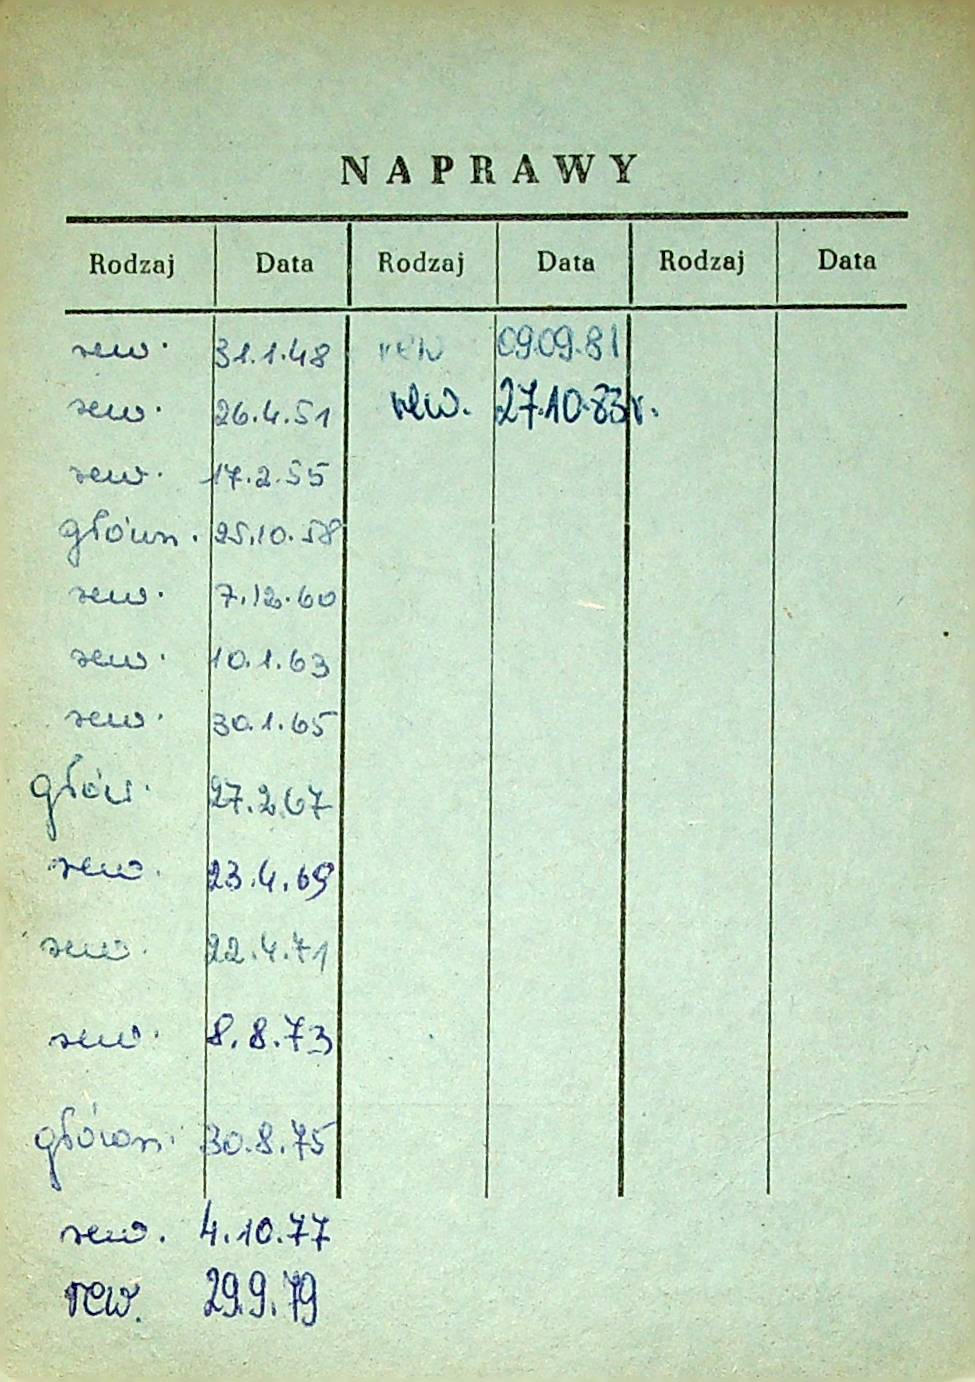 NAPRAWY
Rodzaj Data Rodzaj Data Rodzaj Data
rew. 31.1.48 rew 09.09.81
rew. 26.4.51 rew. 27.10.83r.
rew. 17.2.55
główn. 25.10.58
rew. 7.12.60
rew. 10.1.63
rew. 30.1.65
głów. 27.2.67
rew. 23.4.69
rew. 22.4.71
rew. 8.8.73
główn. 30.8.75
rew. 4.10.77
rew. 29.9.79